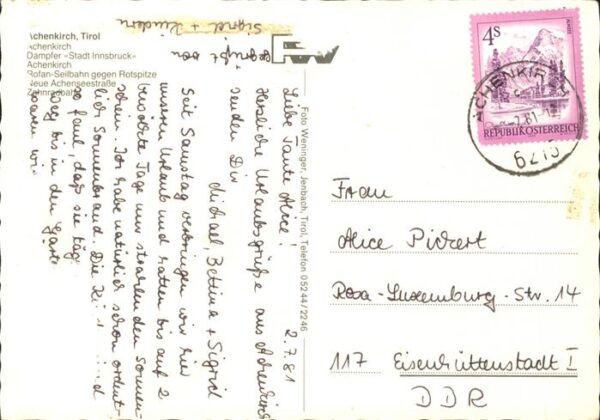 Achenkirch, Tirol
Achenkirch
Dampfer »Stadt Innsbruck«
Achenkirch
Rofan-Seilbahn gegen Rotspitze
Neue Achenseestraße
Zahnradbahn
Foto Weninger, Jenbach, Tirol, Telefon 0 52 44 / 2246
2.7.81
Liebe Tante Alice!
Herzliche Urlaubsgrüße aus Achenkirch
senden Dir
Michael Bettina + Sigrid
Seit Samstag verbringen wir hier
unseren Urlaub und hatten bis auf 2
verregnete Tage nur strahlenden Sonnen-
schein. Ich habe natürlich schon ordent-
lich Sonnenbrand. Die
so faul, daß sie
Weg bis in den
waren wir
gegrüßt von
Sigrid + Kindern
4S
REPUBLIK ÖSTERREICH
ACHENKIRCH
2.7.81
6215
Frau
Alice Pickert
Rosa-Luxemburg-Str. 14
117 Eisenhüttenstadt I
DDR